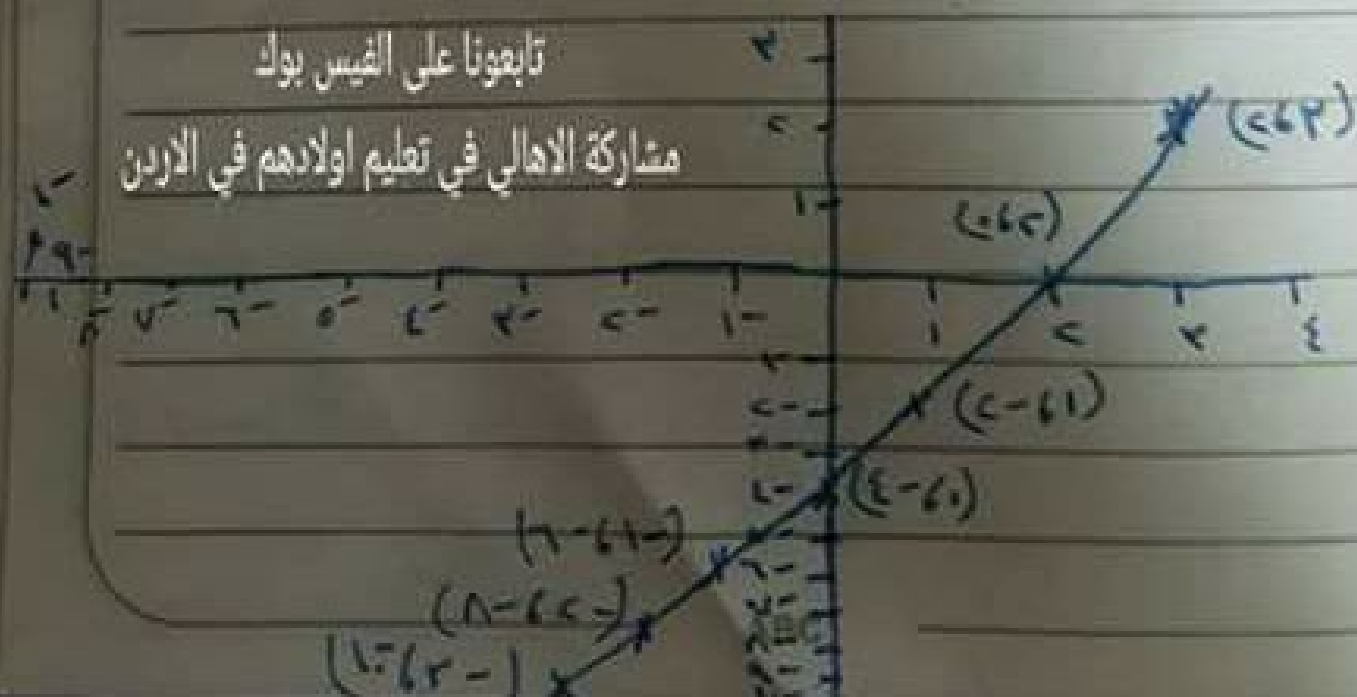 تابعونا على الفيس بوك
مشاركة الاهالي في تعليم اولادهم في الاردن
٣
٢
١
(٣، ٢)
(٢، ٠)
-٩ -٨ -٧ -٦ -٥ -٤ -٣ -٢ -١ ١ ٢ ٣ ٤
-٢
(١، -٢)
-٤
(٠، -٤)
(-١، -٦)
-٦
(-٢، -٨)
(-٣، -١٠)